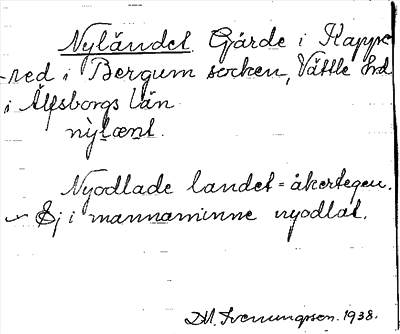 Nyländet. Gärde i Kapp-
red i Bergum socken, Vättle hd
i Älfsborgs län
nỳlænt.
Nyodlade landet = åkertegen.
Ej i mannaminne nyodlat.
1938.